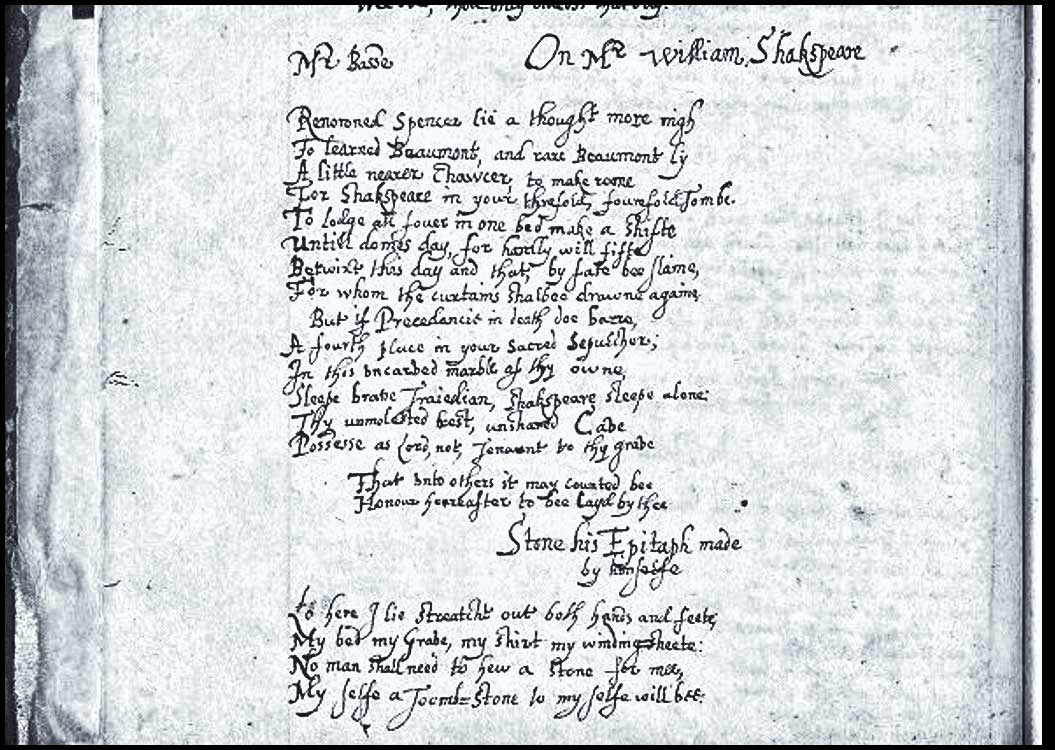 thou only
Mr Basse
On Mr William Shakspeare
Renowned Spencer lie a thought more nigh
To learned Beaumont, and rare Beaumont ly
A little nearer Chawcer, to make roome
For Shakspeare in your threfold, fourefold Tombe.
To lodge all fouer in one bed make a shifte
Untill domes day, for hardly will fifte
Betwixt this day and that, by fate bee slaine,
For whom the curtains shalbee drawne againe.
But if Precedencie in death doe barre,
A fourth place in your Sacred Sepulcher;
In this uncarved marble of thy owne,
Sleepe brave Traiedian, Shakspeare sleepe alone:
Thy unmolested rest, unshared Cave
Possesse as Lord, not Tenaunt to thy grave
That unto others it may counted bee
Honour hereafter to bee Layd by thee
Stone his Epitaph made
by himselfe
Lo here I lie streatcht out both hands and feete,
My bed my Grave, my shirt my winding sheete:
No man shall need to hew a Stone for mee,
My selfe a Toomb=Stone to my selfe will bee.